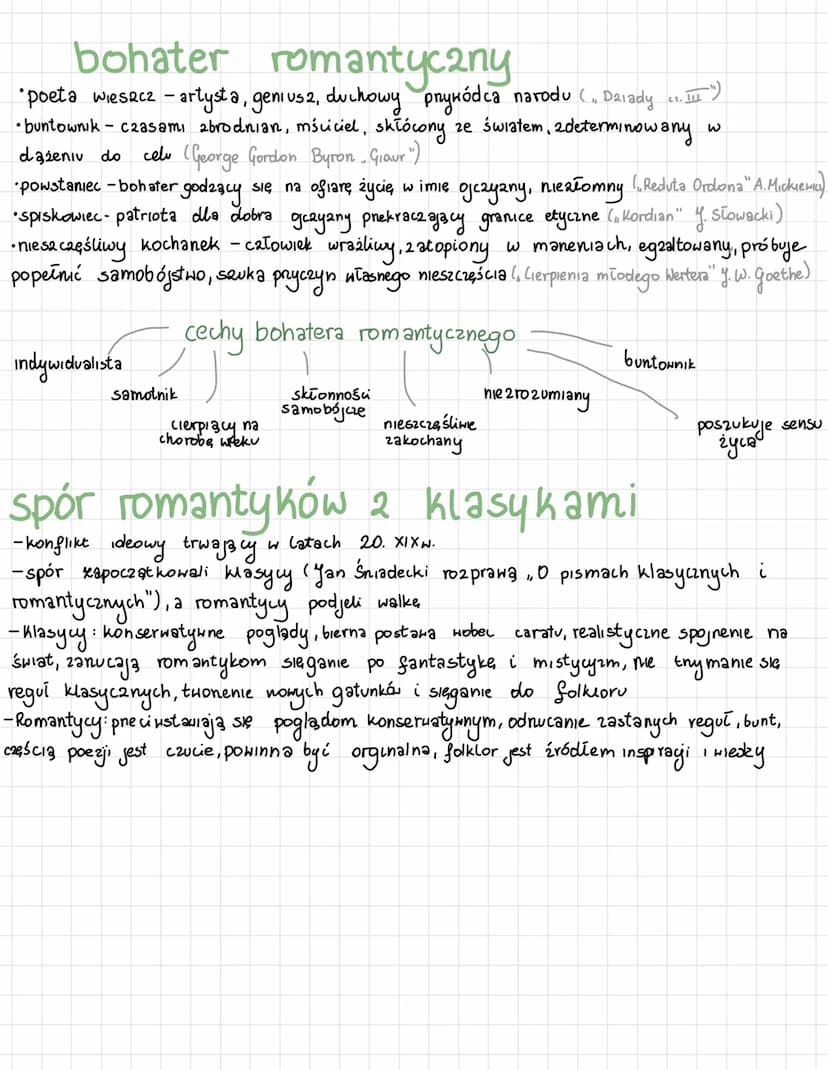 bohater romantyczny
• poeta wieszcz – artysta, geniusz, duchowy przywódca narodu („Dziady cz. III")
• buntownik – czasami zbrodniarz, mściciel, skłócony ze światem, zdeterminowany w
dążeniu do celu (George Gordon Byron „Giaur")
• powstaniec – bohater godzący się na ofiarę życię w imię ojczyzny, niezłomny („Reduta Ordona" A. Mickiewicz)
• spiskowiec - patriota dla dobra ojczyzny przekraczający granice etyczne („Kordian" J. Słowacki)
• nieszczęśliwy kochanek – człowiek wrażliwy, zatopiony w marzeniach, egzaltowany, próbuje
popełnić samobójstwo, szuka przyczyn własnego nieszczęścia („Cierpienia młodego Wertera" J. W. Goethe)
cechy bohatera romantycznego
indywidualista
samotnik
cierpiący na
chorobę wieku
skłonności
samobójcze
nieszczęśliwe
zakochany
niezrozumiany
buntownik
poszukuje sensu
życia
spór romantyków z klasykami
– konflikt ideowy trwający w latach 20. XIX w.
– spór zapoczątkowali klasycy (Jan Śniadecki rozprawą „O pismach klasycznych i
romantycznych"), a romantycy podjeli walkę
– Klasycy: konserwatywne poglądy, bierna postawa wobec caratu, realistyczne spojrzenie na
świat, zarzucają romantykom sięganie po fantastykę i mistycyzm, nie trzymanie się
reguł klasycznych, tworzenie nowych gatunków i sięganie do folkloru
– Romantycy: przeciwstawiają się poglądom konserwatywnym, odrzucanie zastanych reguł, bunt,
częścią poezji jest czucie, powinna być orginalna, folklor jest źródłem inspiracji i wiedzy